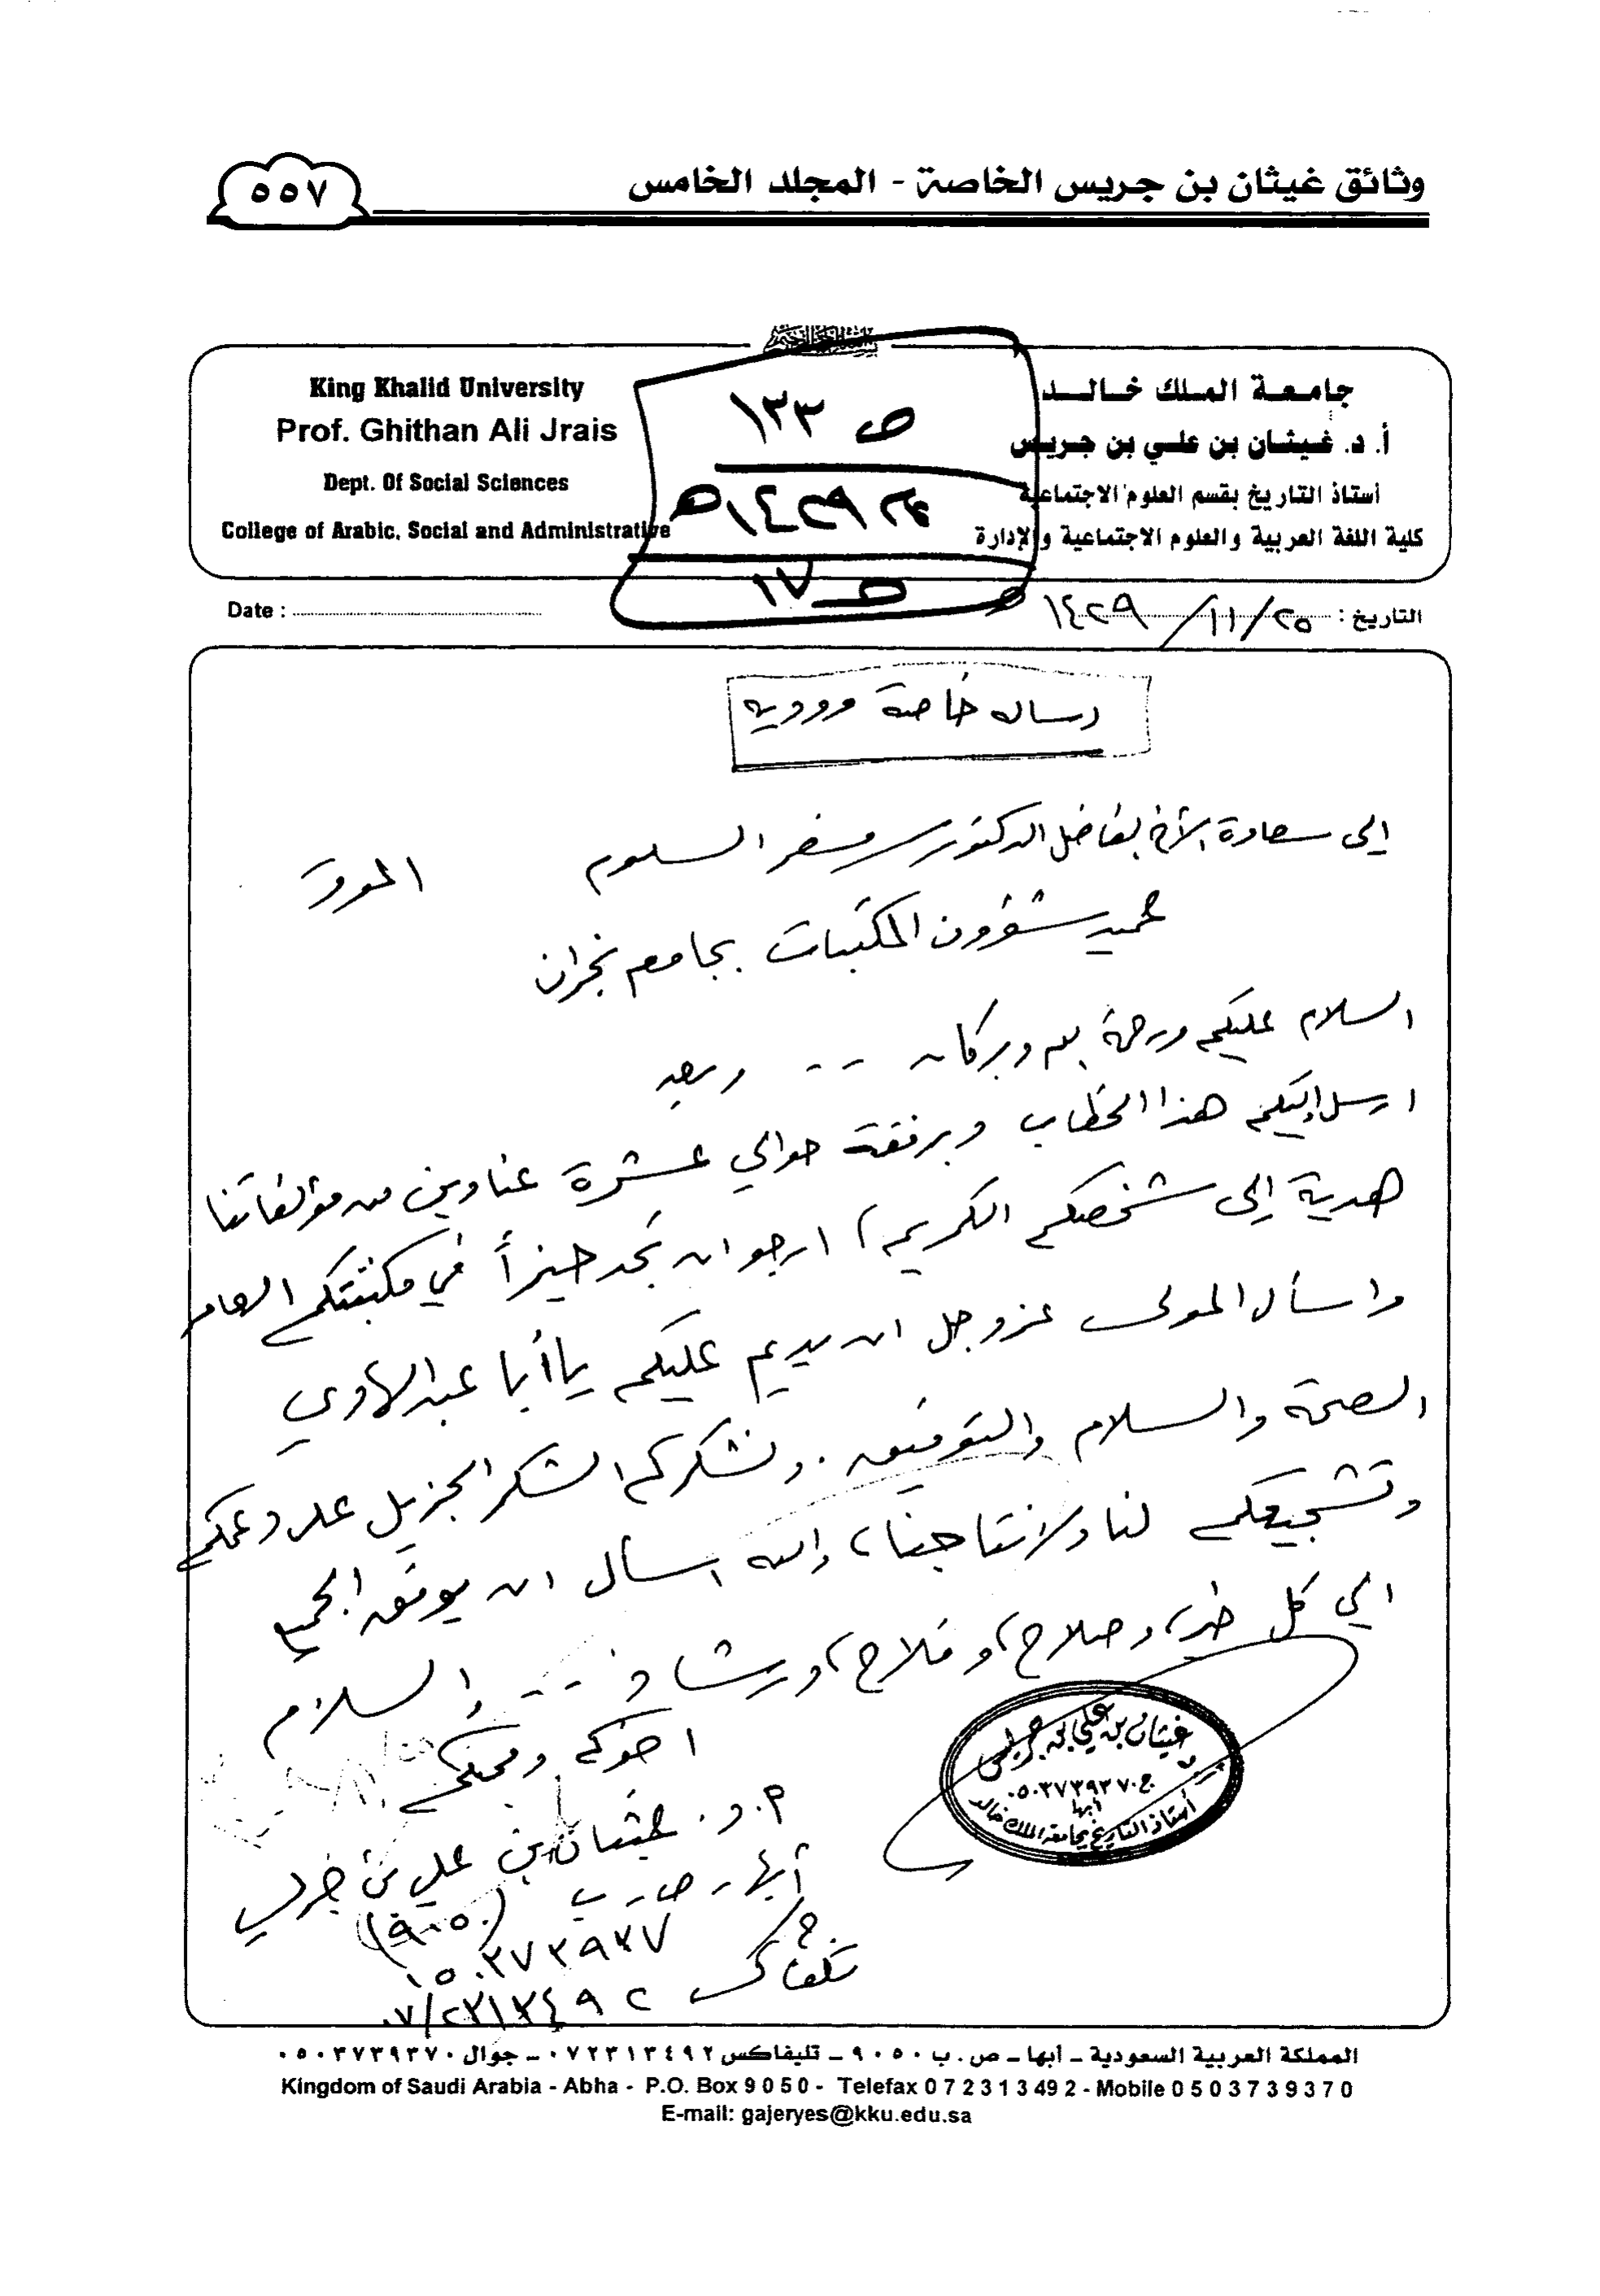 وثائق غيثان بن جريس الخاصة - المجلد الخامس
٥٥٧
جامعة الملك خالد
أ. د. غيثان بن علي بن جريس
أستاذ التاريخ بقسم العلوم الاجتماعية
كلية اللغة العربية والعلوم الاجتماعية والإدارة
King Khalid University
Prof. Ghithan Ali Jrais
Dept. Of Social Sciences
College of Arabic, Social and Administrative
ص ١٣٣
١٤٢٩هـ
ص ١٧
التاريخ : ٢٥/١١/١٤٢٩هـ
Date :
رسالة خاصة وودية
إلى سعادة الأخ الفاضل الدكتور مسفر السلوم الموقر
عميد شؤون المكتبات بجامعة نجران
السلام عليكم ورحمة الله وبركاته .. وبعد
ارسل إليكم هذا الخطاب وبرفقة حوالي عشرة عناوين من مؤلفاتنا
هدية إلى شخصكم الكريم، ارجو ان تجد حيزاً في مكتبتكم العامر
واسأل المولى عز وجل ان يديم عليكم يا أبا عبدالهادي
الصحة والسلام والتوفيق . ونشكركم الشكر الجزيل على دعمكم
وتشجيعكم لنا ولانتاجنا، والله اسأل ان يوفق الجميع
الى كل خير، وصلاح، وفلاح، ورشاد .. والسلام
اخوكم ومحبكم
أ.د. غيثان بن علي بن جريس
أبها - ص. ب (٩٠٥٠)
ج / ٠٥٠٣٧٣٩٣٧
تلفاكس ٠٧/٢٣١٣٤٩٢
غيثان بن علي بن جريس
ج ٠٥٠٣٧٣٩٣٧٠
أبها
أستاذ التاريخ بجامعة الملك خالد
المملكة العربية السعودية - أبها - ص . ب ٩٠٥٠ - تليفاكس ٠٧٢٣١٣٤٩٢ - جوال ٠٥٠٣٧٣٩٣٧٠
Kingdom of Saudi Arabia - Abha - P.O. Box 9 0 5 0 - Telefax 0 7 2 3 1 3 49 2 - Mobile 0 5 0 3 7 3 9 3 7 0
E-mail: gajeryes@kku.edu.sa